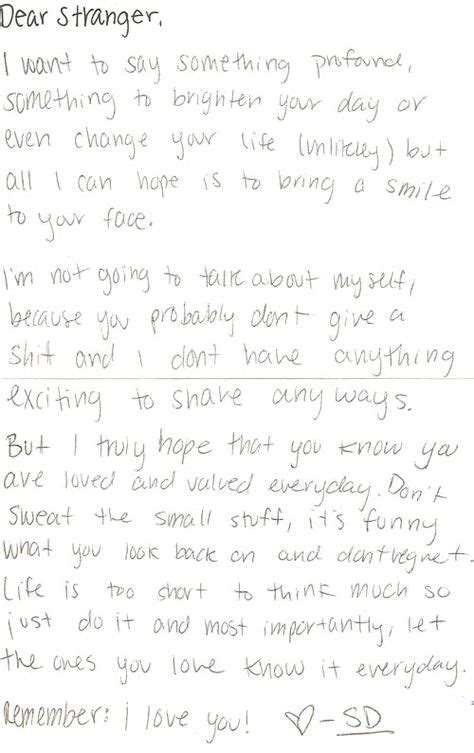 Dear Stranger,
I want to say something profound,
something to brighten your day or
even change your life (unlikley) but
all I can hope is to bring a smile
to your face.
I'm not going to talk about myself,
because you probably dont give a
shit and I dont have anything
exciting to share any ways.
But I truly hope that you know you
are loved and valued everyday. Don't
sweat the small stuff, it's funny
what you look back on and dont regret.
Life is too short to think much so
just do it and most importantly, let
the ones you love know it everyday.
Remember: i love you! ♡-SD